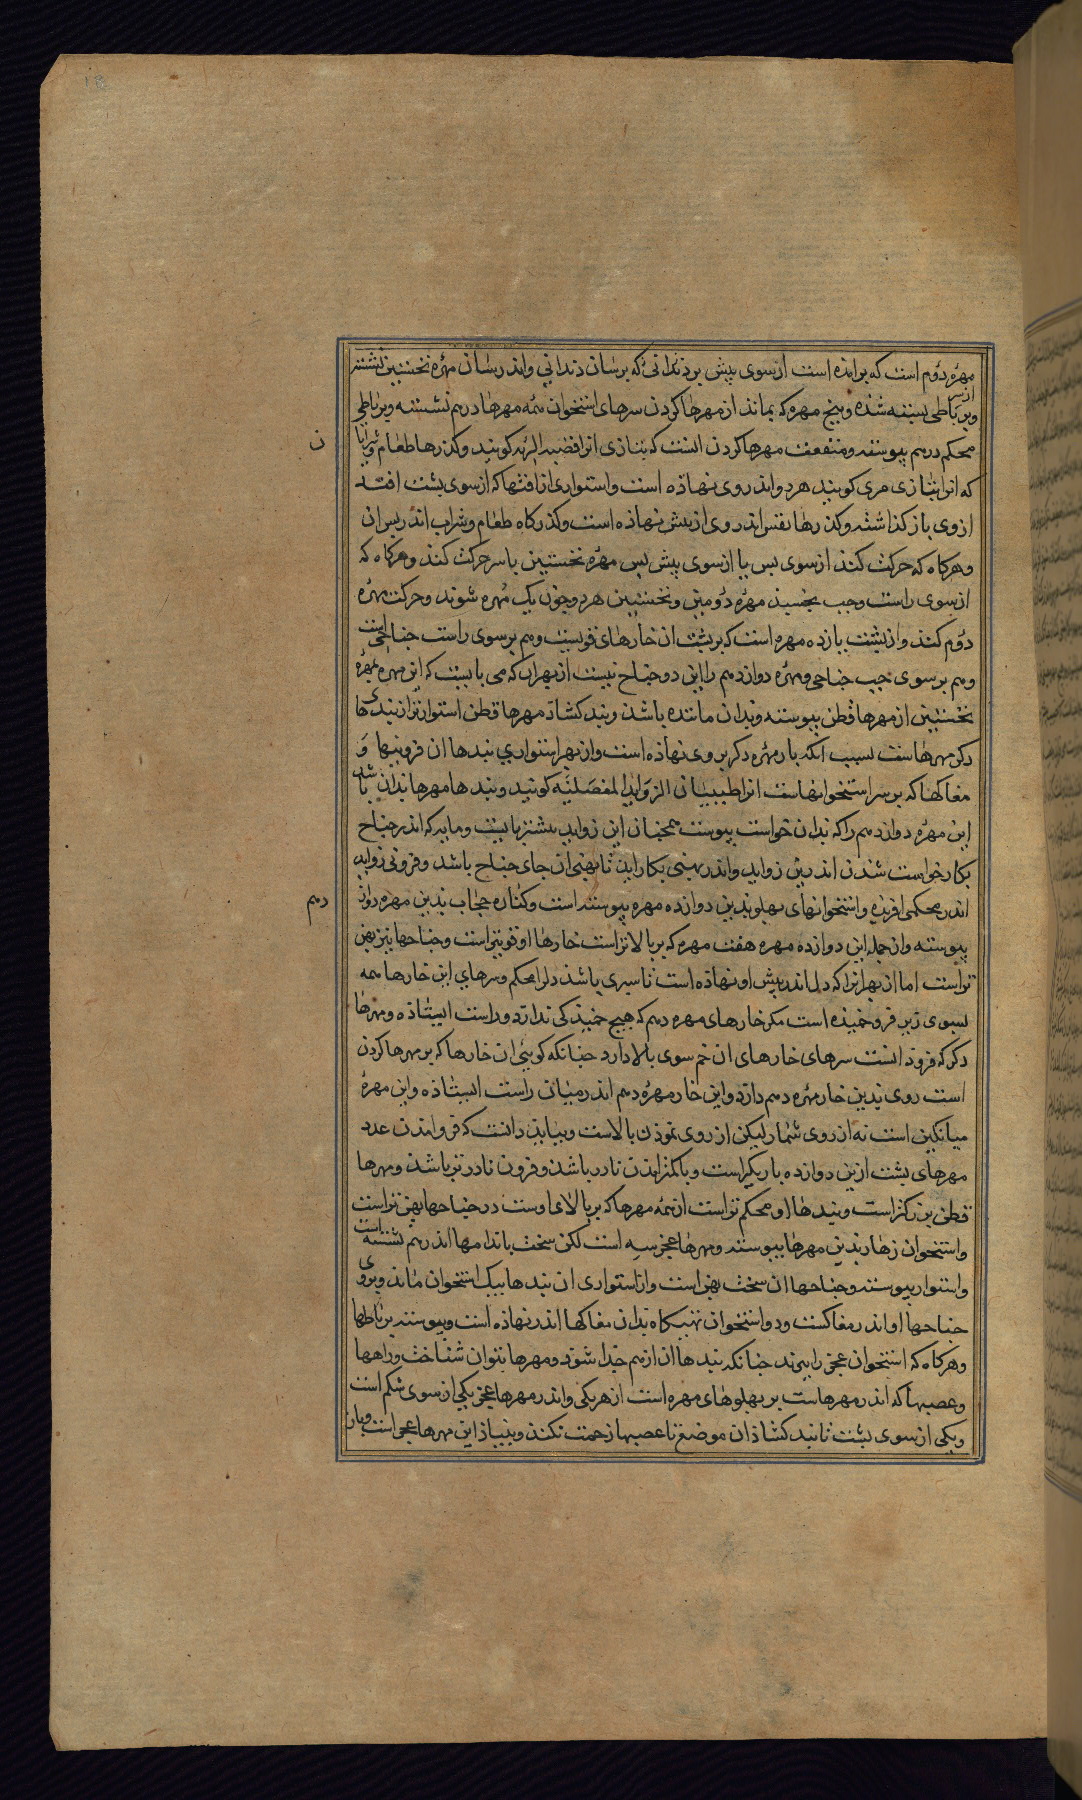 مهره دوم است که برامده است از سوی پیش بر دندانی که برسان دندانی و اندرسان مهره نخستین نشسته
از سر
و برباطی بسته شده و پنج مهره که بماند از مهرها کردن سرهای استخوان همه مهرها درهم نشسته و برباطی
محکم درهم پیوسته و منفعت مهرها کردن انست که بتازی انرا قصبه الریه کویند و کذرها طعام و شراب را
ن
که انرا بتازی مری کویند هر دو اندر وی نهاذه است و استواری از افتها که از سوی پشت افتد
از وی باز کذاشته و کذرها نفس اندر وی از پیش نهاذه است و کذرکاه طعام و شراب اندر پس ان
و هرکاه که حرکت کند از سوی پس یا از سوی پیش پس مهره نخستین با سر حرکت کند و هرکاه که
از سوی راست و چپ بجنبد مهره دومین و نخستین هر دو چون یک مهره شوند و حرکت مهره
دوم کند و از پشت یازده مهره است که بر پشت ان خارهای قویست و هم بر سوی راست جناحی است
و هم بر سوی چپ جناحی و مهره دوازدهم را این دو جناح نیست از بهر ان که می بایست که این مهره بمهره
نخستین از مهرها قطن پیوسته و بدان ماننده باشذ و بند کشاد مهرها قطن استوارتر از بندی ها
دکر مهرهاست بسبب انکه بار مهره دکر بر وی نهاذه است و از بهر استواری بندها ان فزونیها و
مغاکها که بر سر استخوانهاست انرا طبیبان الزواید المفصلیه کویند و بندها مهرها بدان باشد
این مهره دوازدهم را که بدان خواست پیوست همچنان این زواید بیشتر بایست و مایه که اندر جناح
بکار خواست شدن اندرین زواید و اندر پهنی بکار اید تا پهنی ان جای جناح باشد و فزونی زواید
اندر محکمی افزید و استخوانهای پهلو بدین دوازده مهره پیوسته است و کناره حجاب بدین مهره دواز
دهم
پیوسته و از جمله این دوازده مهره هفت مهره که بر بالاتر است خارها او قویتر است و جناحها نیز پهن
تر است اما از بهر انرا که دل اندر پیش او نهاذه است تا سپری باشذ دل را محکم و سرهای این خارها همه
بسوی زیر فرو خمیذه است مکر خارهای مهره دهم که هیچ خمیذکی ندارد و راست ایستاذه و مهرها
دکر که فروذ انست سرهای خارهای ان خم سوی بالا دارد چنانکه کویی ان خارها که بر مهرها کردن
است روی بدین خار مهره دهم دارد و این خار مهره دهم اندر میان راست ایستاذه و این مهره
میانکین است نه از روی شمار لیکن از روی نموذن بالاست و ببایذ دانست که فرو امدن عدد
مهرهای پشت ازین دوازده باریکتر است و با کمتر امدن نادر باشذ و فزون نادرتر باشذ و مهرها
قطن بزرکتر است و بندها او محکم تر است از همه مهرها که بر بالای اوست در جناحها پهن تر است
و استخوان زهار بدین مهرها پیوسته و مهرها عجز سه است لکن سخت باندامها اندر هم نشسته است
و استوار پیوسته و جناحها ان سخت پهن است و از استواری ان بندها بیک استخوان ماند و بر وی
جناحها او اندر مغاکست و دو استخوان تهیکاه بدان مغاکها اندر نهاذه است و پیوسته برباطها
و هرکاه که استخوان عجز را بپزند چنانکه بندها ان از هم جدا شوذ و مهرها بتوان شناخت و راهها
و عصبها که اندر مهرهاست بر پهلوهای مهره است از هر یکی و اندر مهرها عجز یکی از سوی شکم است
و یکی از سوی پشت تا بند کشاذ ان موضع تا عصبها زحمت نکند و بنیاذ این مهرها عجز است و بار